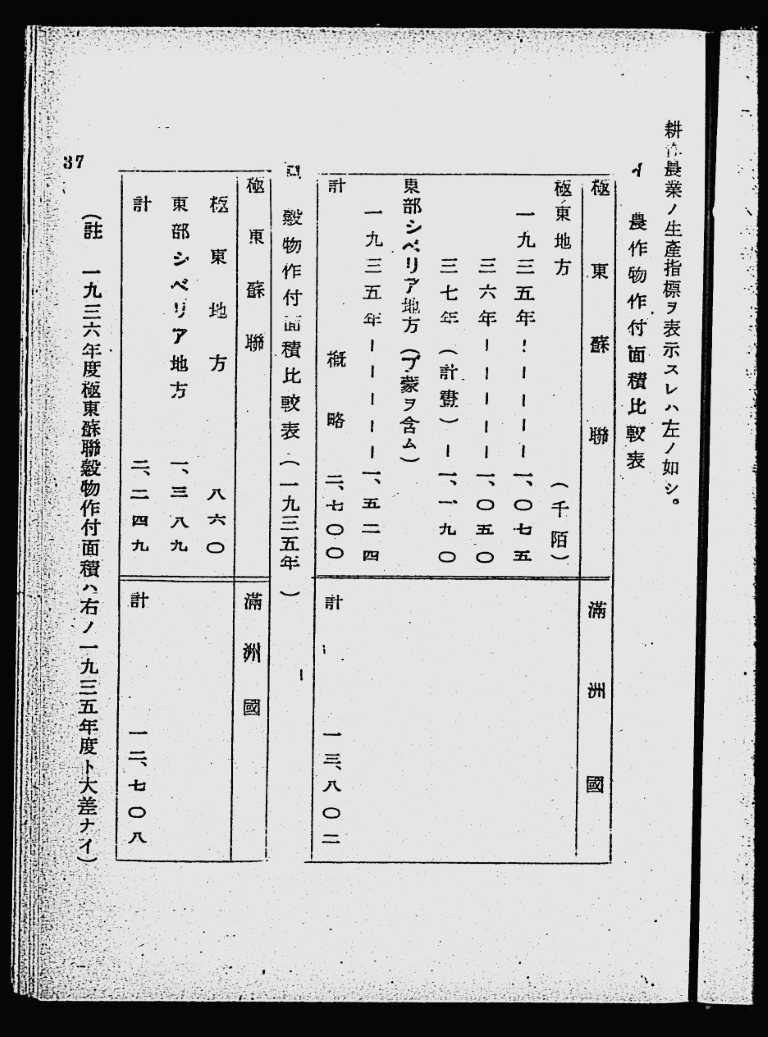 耕作農業ノ生產指標ヲ表示スレハ左ノ如シ。
イ 農作物作付面積比較表
極東蘇聯 滿洲國
極東地方 (千陌)
一九三五年————一、〇七五
三六年————一、〇五〇
三七年(計畫)—一、一九〇
東部シベリア地方(ブ蒙ヲ含ム)
一九三五年—————一、五二四
計 槪略 二、七〇〇 計 一三、八〇二
ロ 穀物作付面積比較表(一九三五年)
極東蘇聯 滿洲國
極東地方 八六〇
東部シベリア地方 一、三八九
計 二、二四九 計 一二、七〇八
(註 一九三六年度極東蘇聯穀物作付面積ハ右ノ一九三五年度ト大差ナイ)
37